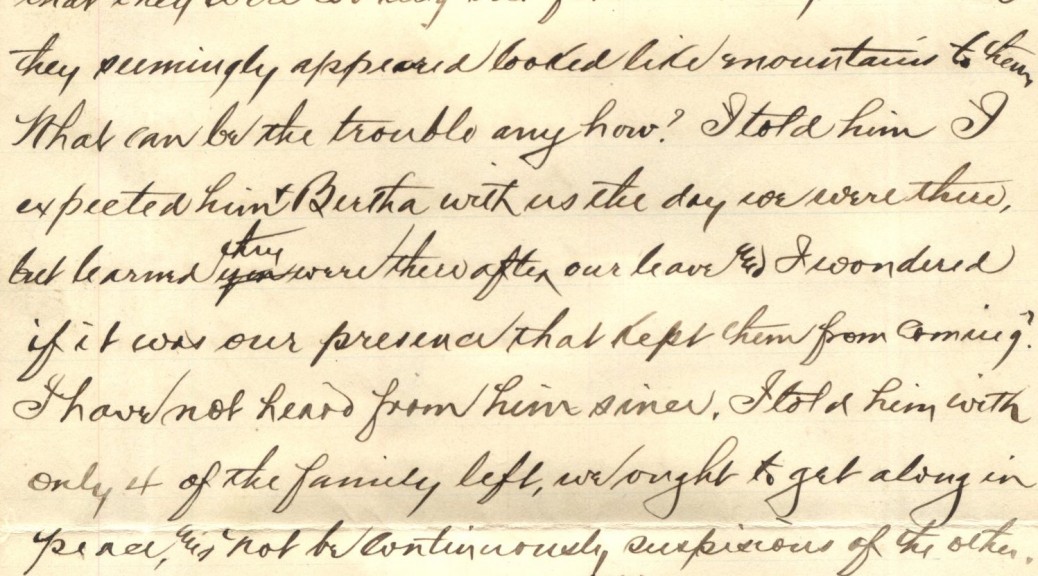 that they were
they seemingly appeared looked like mountains to them
What can be the trouble any how? I told him I
expected him & Bertha with us the day we were there,
but learned they you were there after our leave & I wondered
if it was our presence that kept them from coming?
I have not heard from him since. I told him with
only 4 of the family left, we ought to get along in
peace, & not be continuously suspisious of the other.